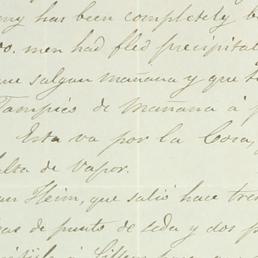 my has been completely b
o. men had fled precipita
que salgan mañana y que t
Tampico de Mañana á p
Esta va por la Cosa,
alta de Vapor.
an Heim, que salió hace tre
as de punto de seda y dos p